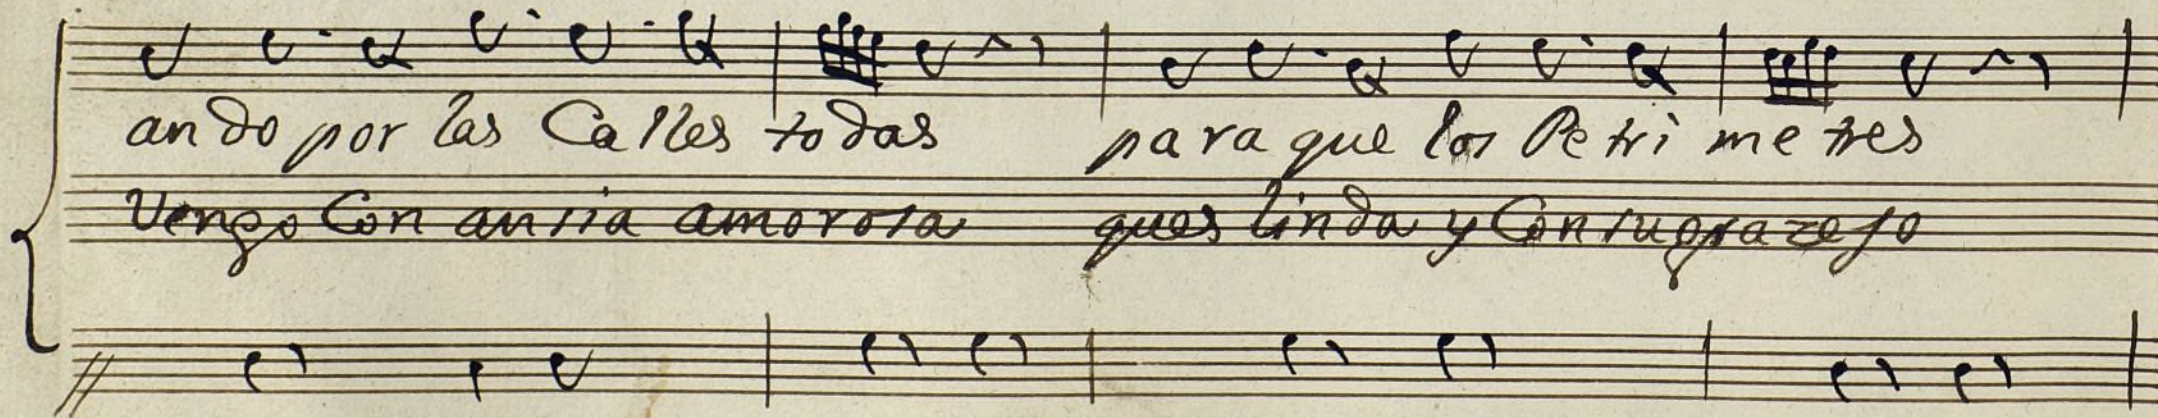 an do por las Ca lles to das para que los Pe tri me tres
Vengo Con ansia amorosa ques linda y Con su grazejo